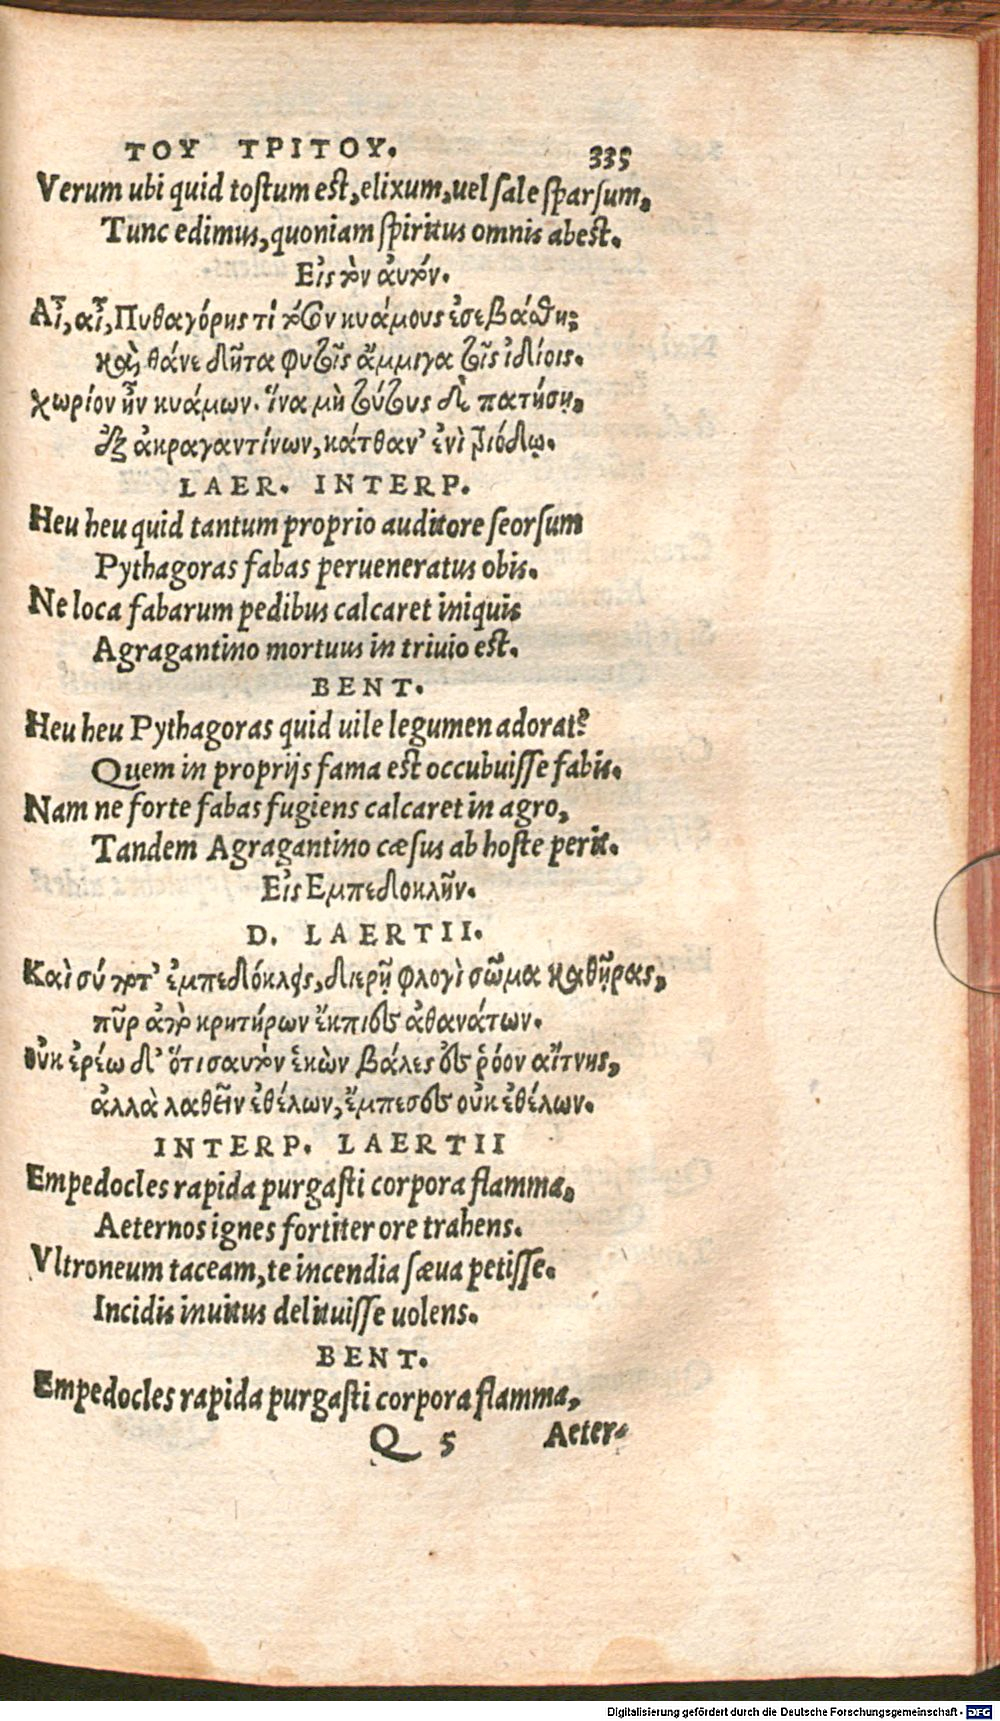 ΤΟΥ ΤΡΙΤΟΥ. 335
Verum ubi quid tostum est, elixum, uel sale sparsum,
Tunc edimus, quoniam spiritus omnis abest.
Εἰς τὸν αὐτόν.
Αἶ, αἶ, Πυθαγόρης τί τόσον κυάμους ἐσεβάσθη;
καὶ θάνε δῆτα φυτοῖς ἄμμιγα τοῖς ἰδίοις.
χωρίον ἦν κυάμων. ἵνα μὴ τούτους δὲ πατήσῃ,
ἐξ ἀκραγαντίνων, κάτθαν' ἐνὶ τριόδῳ.
LAER. INTERP.
Heu heu quid tantum proprio auditore seorsum
Pythagoras fabas perueneratus obis.
Ne loca fabarum pedibus calcaret iniquis
Agragantino mortuus in triuio est.
BENT.
Heu heu Pythagoras quid uile legumen adorat?
Quem in proprijs fama est occubuisse fabis.
Nam ne forte fabas fugiens calcaret in agro,
Tandem Agragantino cæsus ab hoste perit.
Εἰς Εμπεδοκλῆν.
D. LAERTII.
Καὶ σύ ποτ' ἐμπεδόκλεις, διερῇ φλογὶ σῶμα καθῇρας,
πῦρ ἀπὸ κρητήρων ἔκπιες ἀθανάτων.
οὐκ ἐρέω δ' ὅτι σαυτὸν ἑκὼν βάλες ἐς ῥόον αἴτνης,
ἀλλὰ λαθεῖν ἐθέλων, ἔμπεσες οὐκ ἐθέλων.
INTERP. LAERTII
Empedocles rapida purgasti corpora flamma,
Aeternos ignes fortiter ore trahens.
Vltroneum taceam, te incendia sæua petisse.
Incidis inuitus delituisse uolens.
BENT.
Empedocles rapida purgasti corpora flamma,
Q 5 Aeter-
Digitalisierung gefördert durch die Deutsche Forschungsgemeinschaft - DFG